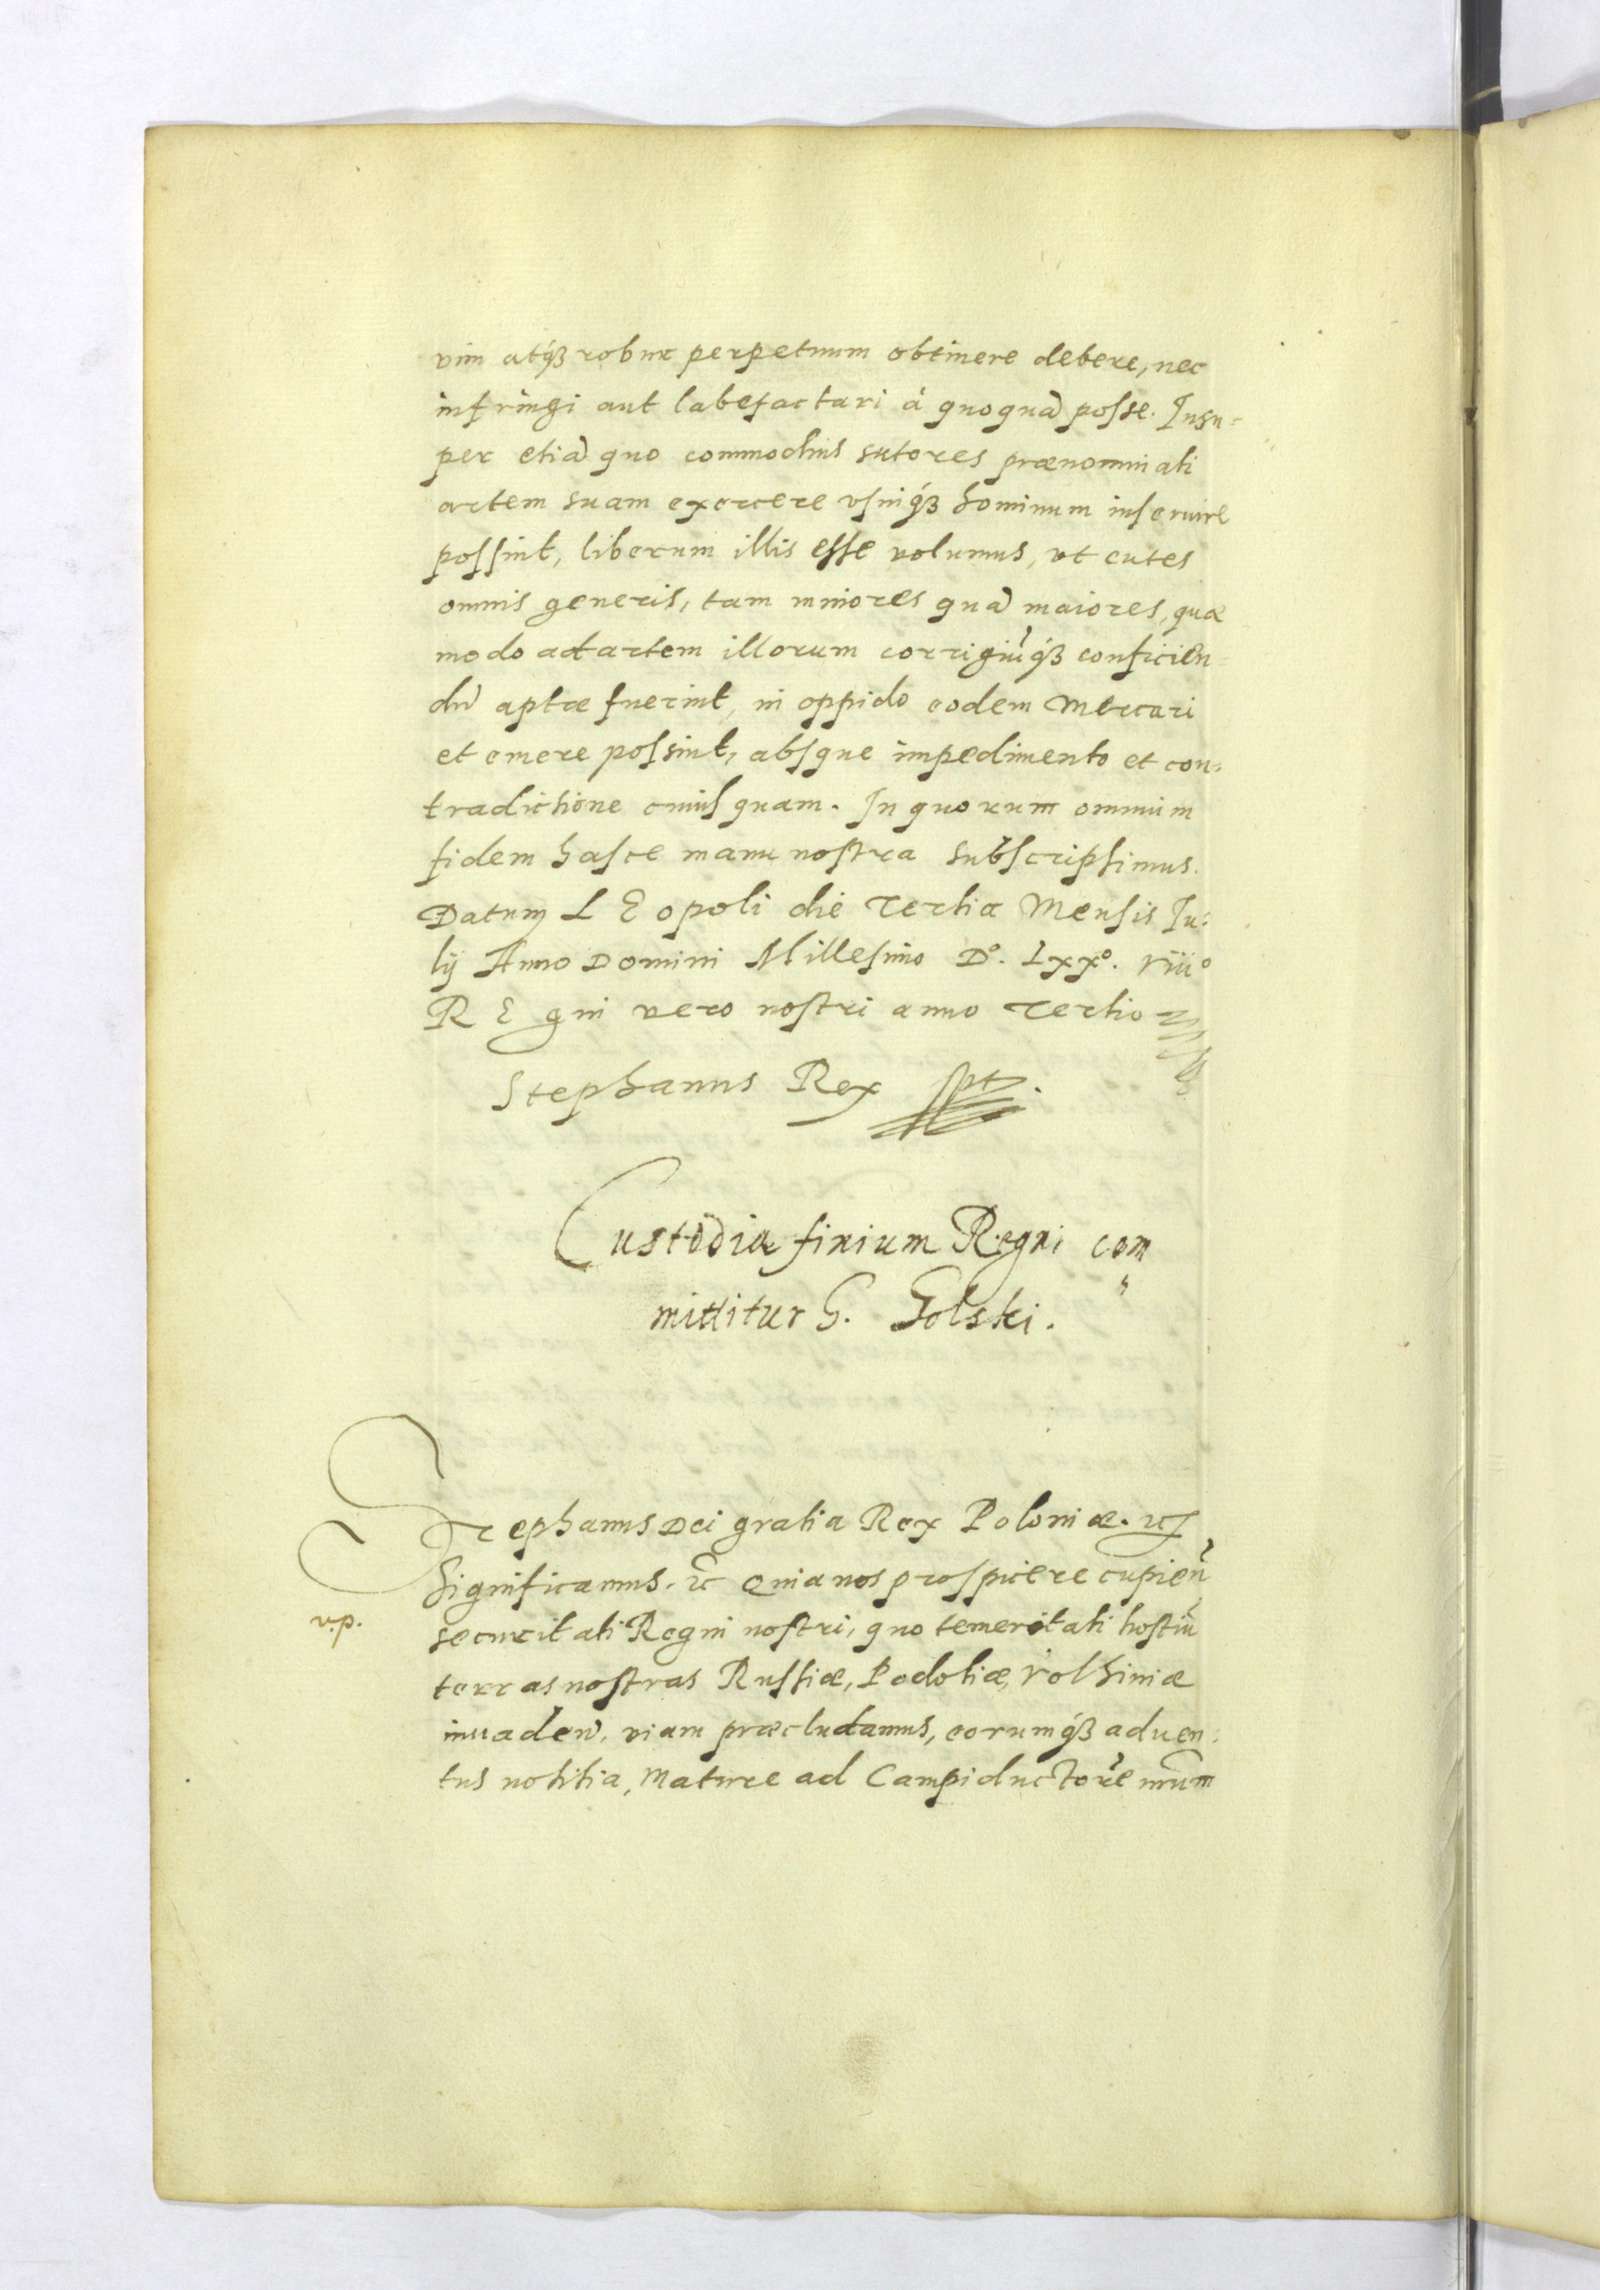 vim atq́ꝫ robur perpetuum obtinere debere, nec
infringi aut labefactari á quoquã posse. Insu-
per etiã quo commodius sutores prænominati
artem suam exercere vsuiq́ꝫ hominum inseruire
possint, liberum illis esse volumus, vt cutes
omnis generis, tam minores quã maiores, quæ
modo ad artem illorum corrigiũq́ꝫ conficien-
dũ aptæ fuerint, in oppido eodem mercari
et emere possint, absque impedimento et con-
tradictione cuiusquam. In quorum omnium
fidem hasce manu nostra subscripsimus.
Datum LEopoli die Tertia Mensis Iu-
lij Anno Domini Millesimo D°. Lxx°. viii°
REgni vero nostri anno Tertio
Stephanus Rex sst.
Custodia finium Regni com
mittitur G. Golski.
Stephanus Dei gratia Rex Poloniæ. ꝛc
Significamus. ꝛc Quia nos prospicere cupieñ
v.p.
securitati Regni nostri, quo temeritati hostiũ
terras nostras Russiæ, Podoliæ, Volhiniæ
inuadeñ. viam præcludamus, eorumq́ꝫ aduen-
tus notitia, mature ad Campiductorẽ nr̃um